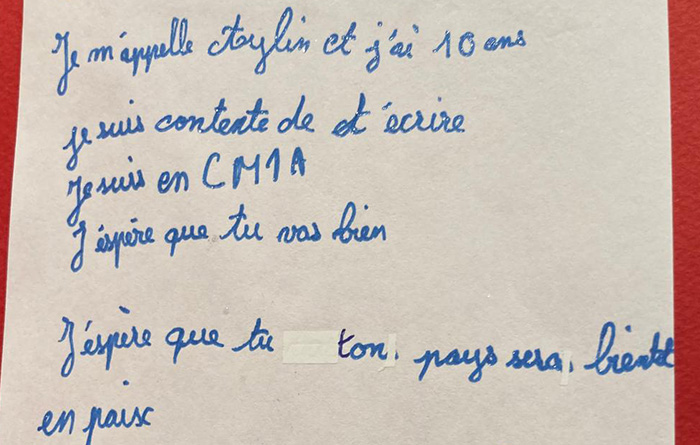 Je m'appelle Aylin et j'ai 10 ans
je suis contente de t'écrire
Je suis en CM1A
J'éspère que tu vas bien
J'éspère que tu ton pays sera bientôt
en paix